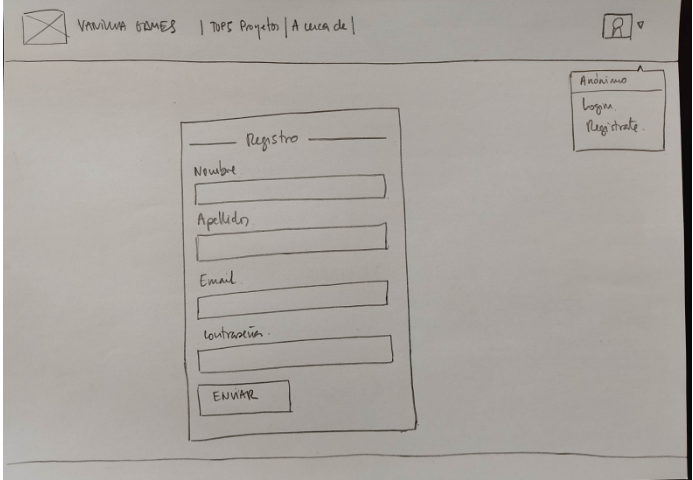 VANILLA GAMES | TOP5 Proyetos | A cerca de |
Anónimo
Login.
Registrate.
Registro
Nombre
Apellidos
Email
Contraseña.
ENVIAR